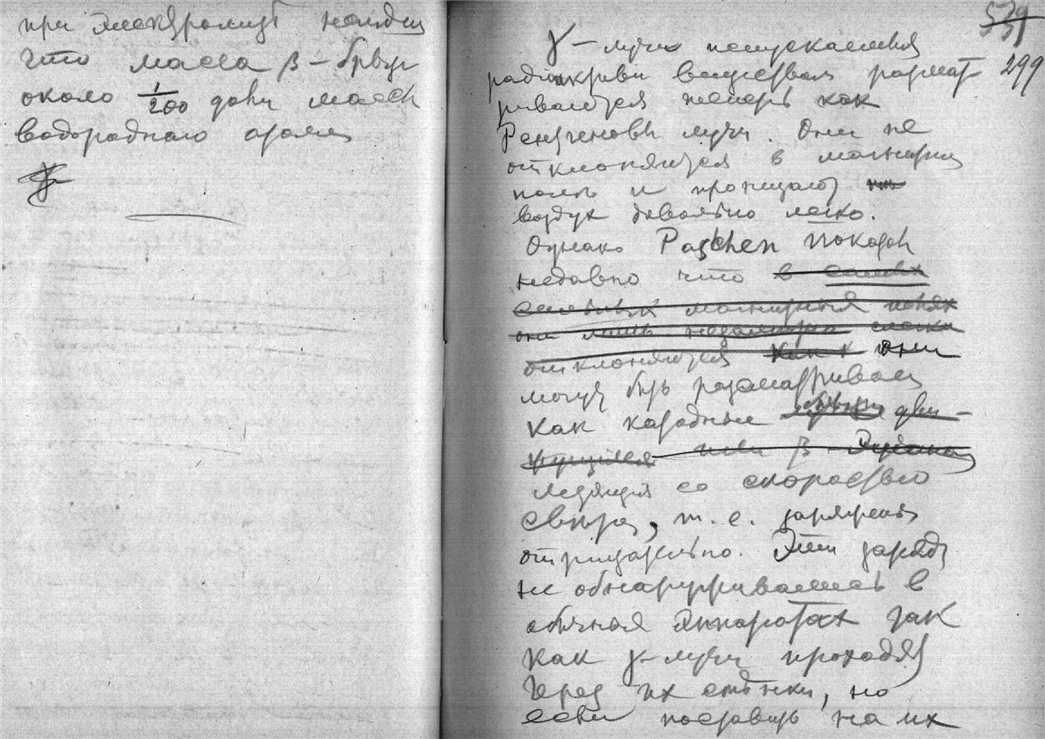 при электролизе найдем
что масса β – брызг
около 1/200 доли массы
водородного атома
γ – лучи испускаемыя
радиоактивн веществам рассмат
риваются теперь как
Рентгеновы лучи. Они не
отклоняются в магнитн
поле и проницают
воздух довольно легко.
Однако Paschen показал
недавно что в самых
сильных магнитных полях
они лишь
отклоняются как они
могут быть рассматриваем
как катодные дви-
жущиеся или β
летящия со скоростью
света, т. е. заряжены
отрицательно. Эти заряды
не обнаруживались в
обычных аппаратах так
как γ-лучи проходят
через их стѣнки, но
если поставить на их
539
299